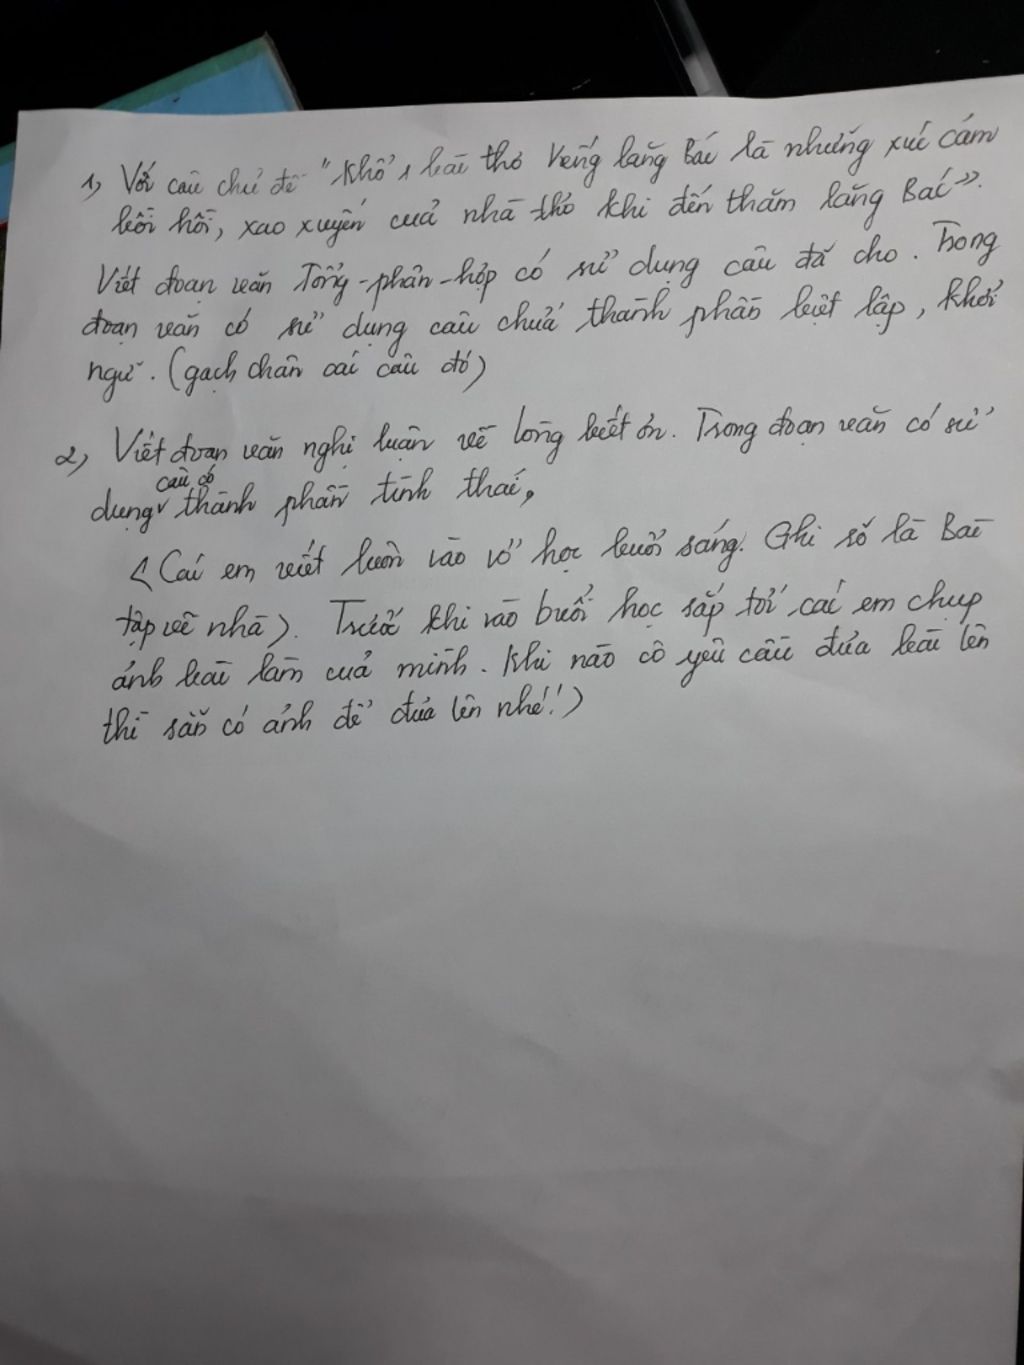 1, Với câu chủ đề "Khổ 1 bài thơ Viếng lăng Bác là những xúc cảm
bồi hồi, xao xuyến của nhà thơ khi đến thăm lăng Bác".
Viết đoạn văn Tổng-phân-hợp có sử dụng câu đã cho. Trong
đoạn văn có sử dụng câu chứa thành phần biệt lập, khởi
ngữ. (gạch chân các câu đó)
2, Viết đoạn văn nghị luận về lòng biết ơn. Trong đoạn văn có sử
câu có
dụng thành phần tình thái,
(Các em viết luôn vào vở học buổi sáng. Ghi số là Bài
tập về nhà). Trước khi vào buổi học sắp tới các em chụp
ảnh bài làm của mình. Khi nào cô yêu cầu đưa bài lên
thì sẵn có ảnh để đưa lên nhé!)